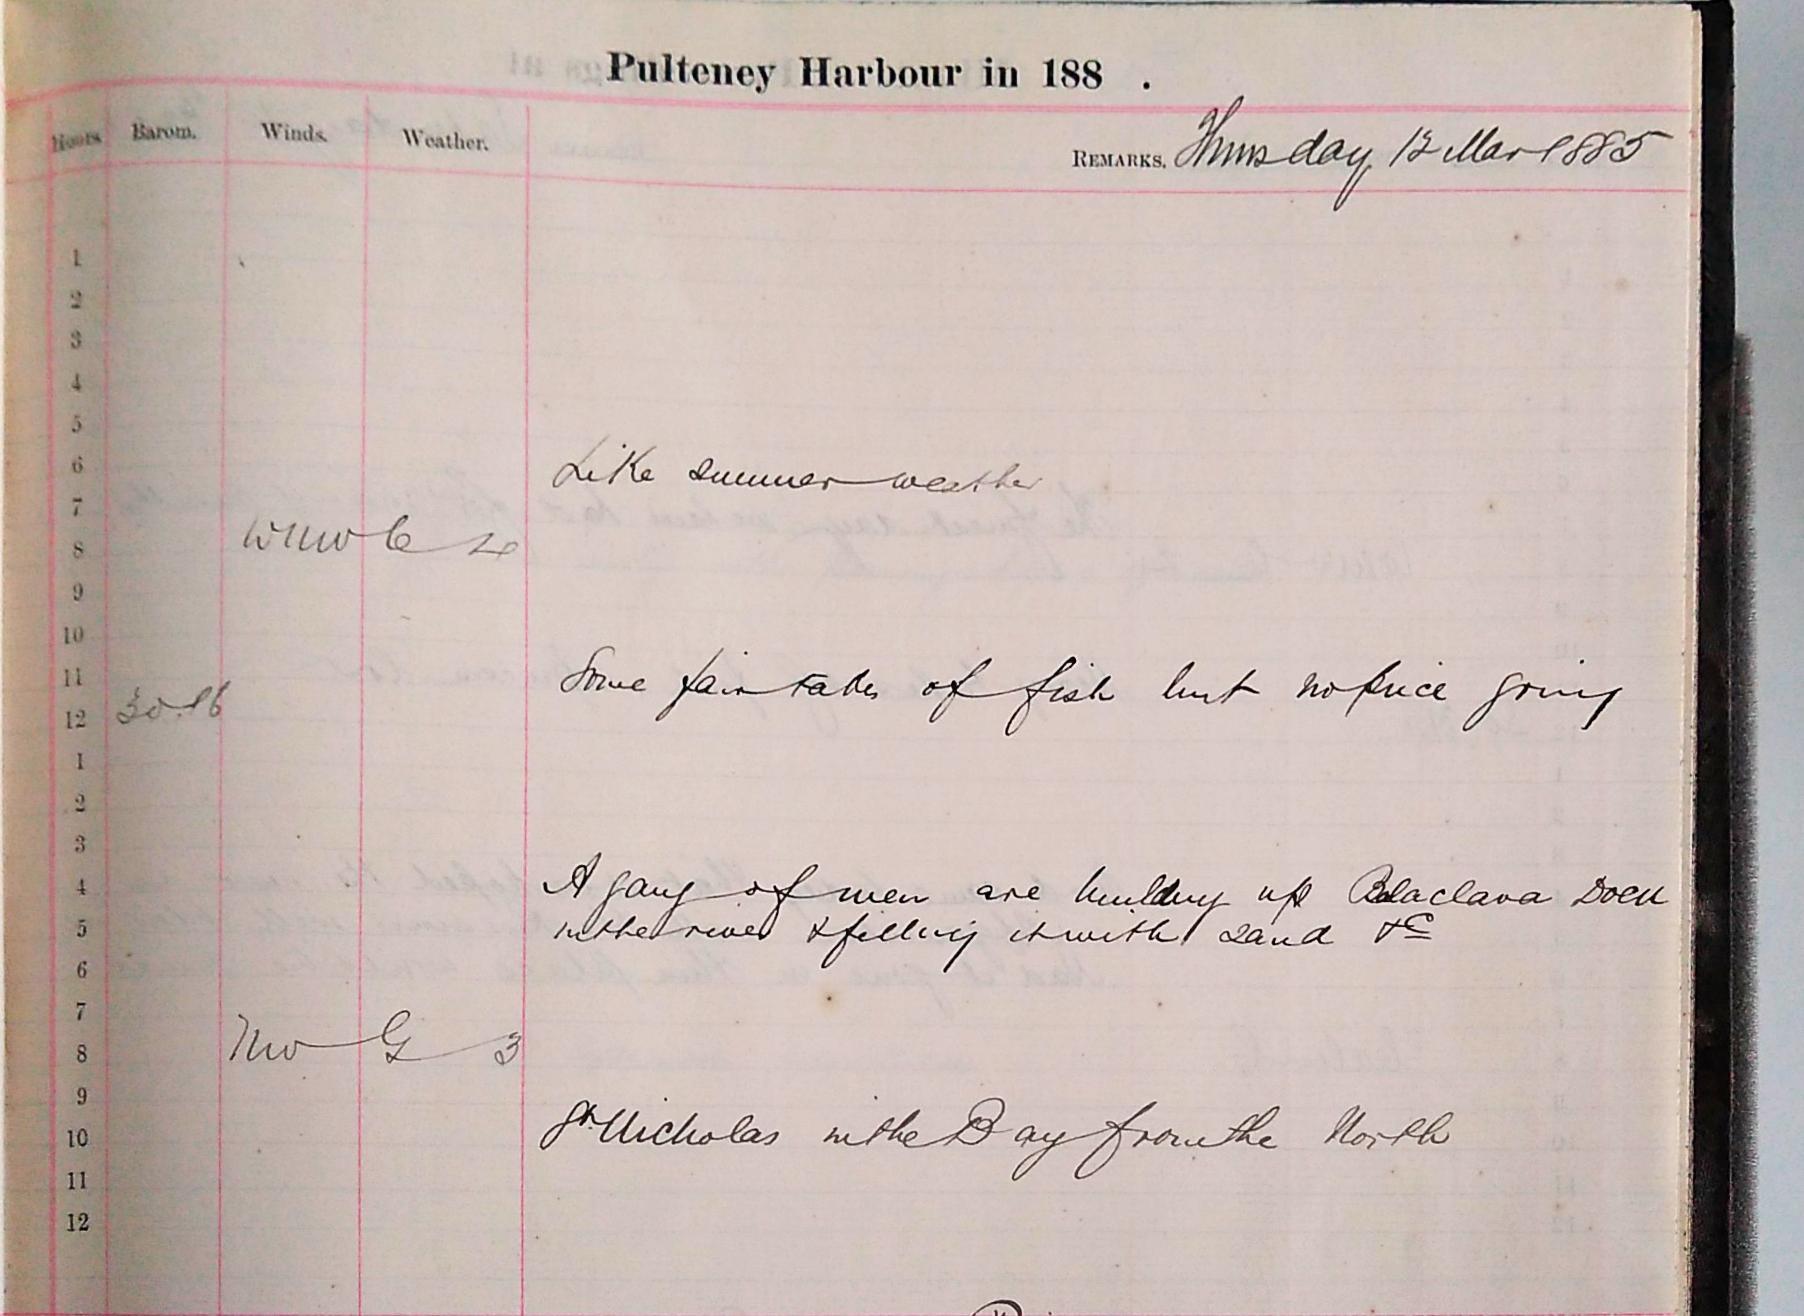 Pulteney Harbour in 188 .
Hours Barom. Winds. Weather. REMARKS. Thursday 12 Mar 1885
1
2
3
4
5
6 Like summer weather
7
8 WNW C 4
9
10
11 Some fair takes of fish but no price going
12 30.16
1
2
3
4 A gang of men are building up Balaclava Dock
5 in the river & filling it with sand &c
6
7
8 NW G 3
9
10 St Nicholas in the Bay from the North
11
12